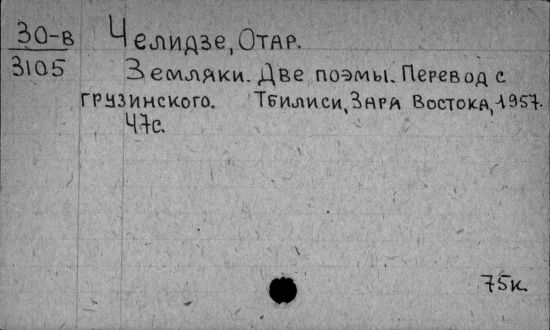 30-в Челидзе, Отар.
3105 Земляки. Две поэмы. Перевод с
грузинского. Тбилиси, Заря Востока, 1957.
47с.
75к.